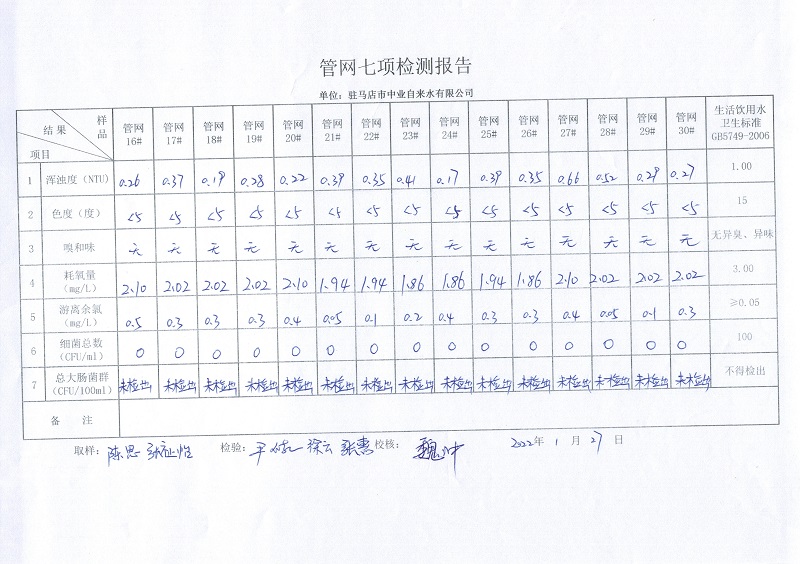 管网七项检测报告
单位：驻马店市中业自来水有限公司
结果 样品 项目 管网16# 管网17# 管网18# 管网19# 管网20# 管网21# 管网22# 管网23# 管网24# 管网25# 管网26# 管网27# 管网28# 管网29# 管网30# 生活饮用水卫生标准GB5749-2006
1 浑浊度（NTU） 0.26 0.37 0.19 0.28 0.22 0.39 0.35 0.41 0.17 0.39 0.35 0.66 0.52 0.29 0.27 1.00
2 色度（度） <5 <5 <5 <5 <5 <5 <5 <5 <5 <5 <5 <5 <5 <5 <5 15
3 嗅和味 无 无 无 无 无 无 无 无 无 无 无 无 无 无 无 无异臭、异味
4 耗氧量（mg/L） 2.10 2.02 2.02 2.02 2.10 1.94 1.94 1.86 1.86 1.94 1.86 2.10 2.02 2.02 2.02 3.00
5 游离余氯（mg/L） 0.5 0.3 0.3 0.3 0.4 0.05 0.1 0.2 0.4 0.3 0.3 0.4 0.05 0.1 0.3 ≥0.05
6 细菌总数（CFU/ml） 0 0 0 0 0 0 0 0 0 0 0 0 0 0 0 100
7 总大肠菌群（CFU/100ml） 未检出 未检出 未检出 未检出 未检出 未检出 未检出 未检出 未检出 未检出 未检出 未检出 未检出 未检出 未检出 不得检出
备 注
取样：陈思 检验： 徐云 张惠 校核： 2022年 1 月 27 日